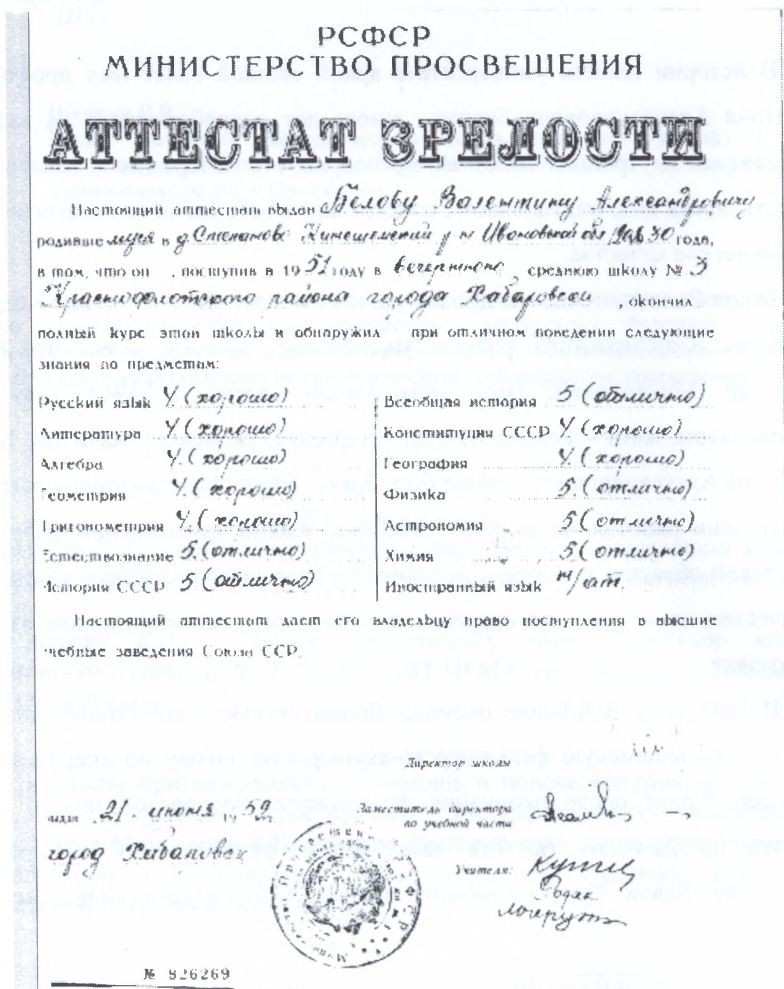 РСФСР
МИНИСТЕРСТВО ПРОСВЕЩЕНИЯ
АТТЕСТАТ ЗРЕЛОСТИ
Настоящий аттестат выдан Белову Валентину Александровичу
родивше муся в д. Степаново Кинешемский р-н Ивановской обл 30 года,
в том, что он , поступив в 1951 году в вечернюю среднюю школу № 3
Краснофлотского района города Хабаровска окончил
полный курс этой школы и обнаружил при отличном поведении следующие
знания по предметам:
Русский язык 4 (хорошо)
Литература 4 (хорошо)
Алгебра 4 (хорошо)
Геометрия 4 (хорошо)
Тригонометрия 4 (хорошо)
Естествознание 5 (отлично)
История СССР 5 (отлично)
Всеобщая история 5 (отлично)
Конституция СССР 4 (хорошо)
География 4 (хорошо)
Физика 5 (отлично)
Астрономия 5 (отлично)
Химия 5 (отлично)
Иностранный язык н/ат.
Настоящий аттестат дает его владельцу право поступления в высшие
учебные заведения Союза ССР.
Директор школы
Выдан 21 июня
Заместитель директора
по учебной части
город Хабаровск
Учителя:
№ 826269